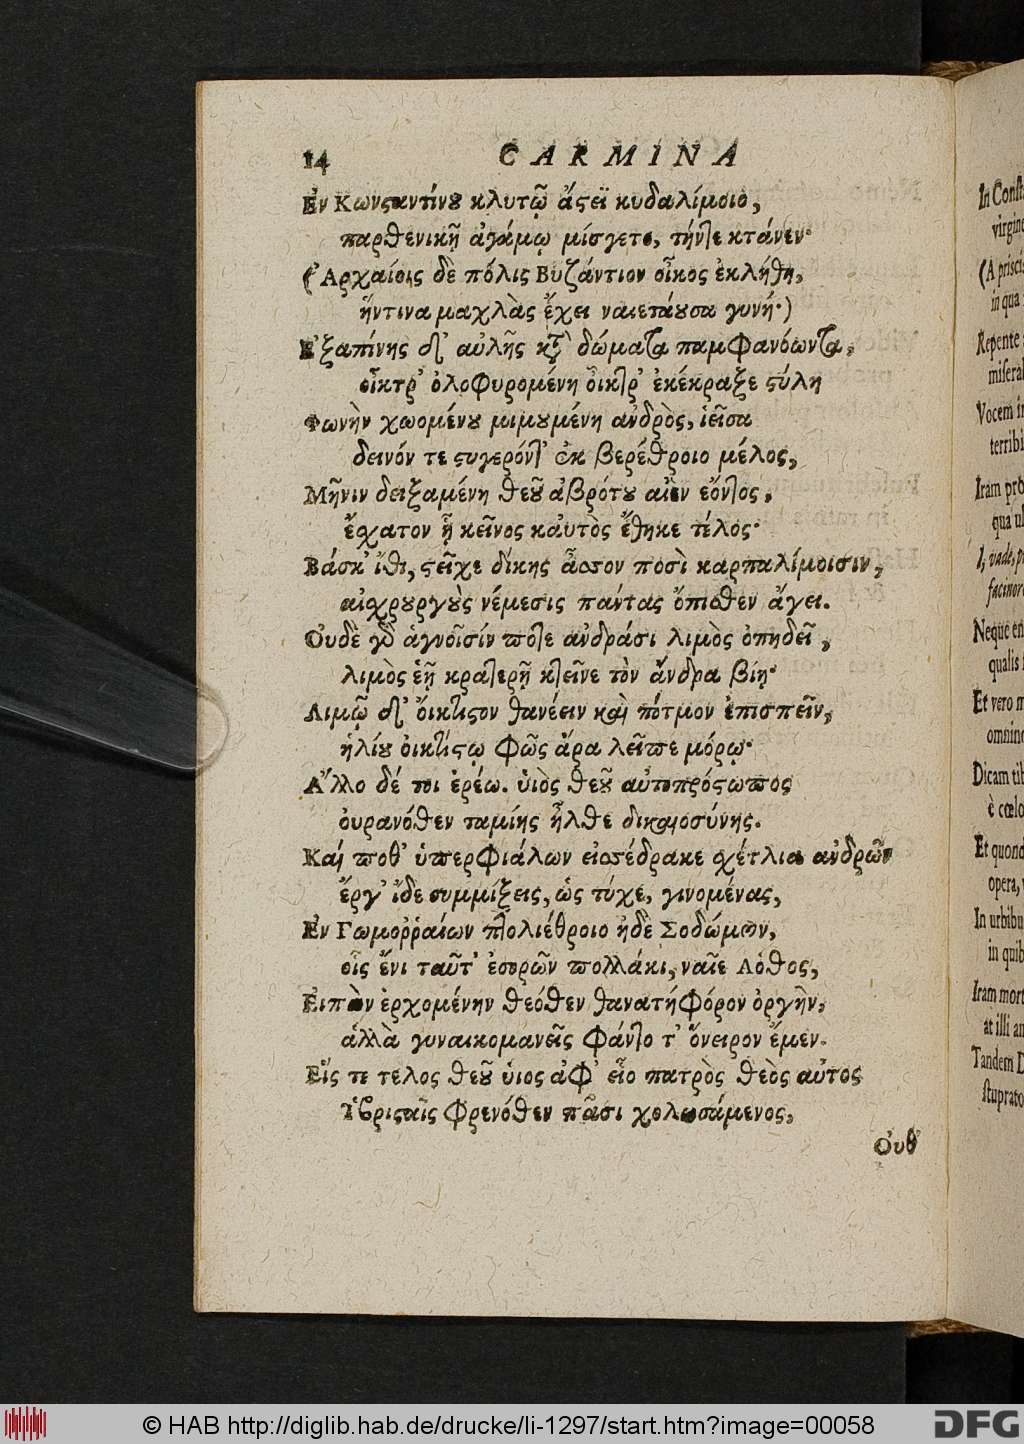 14 CARMINA
Ἐν Κωνσταντίνου κλυτῷ ἄστεϊ κυδαλίμοιο,
παρθενικῇ ἀγάμῳ μίσγετο, τήν τε κτάνεν·
(Ἀρχαίοις δὲ πόλις Βυζάντιον οἶκος ἐκλήθη,
ἥντινα μαχλὰς ἔχει ναιετάουσα γυνή·)
Ἐξαπίνης δ' αὐλῆς κατὰ δώματα παμφανόωντα,
οἶκτρ' ὀλοφυρομένη οἰκτρ' ἐκέκραξε στύλη
Φωνὴν χωομένου μιμουμένη ἀνδρὸς, ἱεῖσα
δεινόν τε στυγερόν τ' ἐκ βερέθροιο μέλος,
Μῆνιν δειξαμένη θεοῦ ἀβρότου αἰὲν ἐόντος,
ἔσχατον ᾗ κεῖνος καὐτὸς ἔθηκε τέλος·
Βάσκ' ἴθι, στεῖχε δίκης ἆσσον ποσὶ καρπαλίμοισιν,
αἰσχρουργοὺς νέμεσις πάντας ὄπισθεν ἄγει.
Οὐδὲ γὰρ ἁγνοῖσίν ποτε ἀνδράσι λιμὸς ὀπηδεῖ,
λιμὸς ἑῇ κρατερῇ κτεῖνε τὸν ἄνδρα βίῃ·
Λιμῷ δ' οἴκτιστον θανέειν καὶ πότμον ἐπισπεῖν,
ἡλίου οἰκτίστῳ φῶς ἄρα λεῖπε μόρῳ·
Ἄλλο δέ τοι ἐρέω. ὑιὸς θεοῦ αὐτοπρόσωπος
οὐρανόθεν ταμίης ἦλθε δικαιοσύνης.
Καί ποθ' ὑπερφιάλων εἰσέδρακε σχέτλια ἀνδρῶν
ἔργ' ἴδε συμμίξεις, ὡς τύχε, γινομένας,
Ἐν Γωμοῤῥαίων πτολιέθροιο ἠδὲ Σοδώμων,
οἷς ἔνι ταῦτ' ἐσορῶν πολλάκι, ναῖε Λόθος,
Εἰπὼν ἐρχομένην θεόθεν θανατήφόρον ὀργὴν,
ἀλλὰ γυναικομανεῖς φάντο τ' ὄνειρον ἔμεν.
Εἴς τε τέλος θεοῦ ὑιος ἀφ' εἷο πατρὸς θεὸς αὐτος
Ὑβρισταῖς φρενόθεν πᾶσι χολωσάμενος,
Οὐθ'
In Const
virgine
(A prisci
in qua
Repente
miseral
Vocem i
terribi
Iram pro
qua ul
I, vade, p
facinor
Neque en
qualis
Et vero m
omnino
Dicam tib
è cœlo
Et quond
opera,
In urbibu
in quib
Iram mort
at illi an
Tandem D
stuprato
© HAB http://diglib.hab.de/drucke/li-1297/start.htm?image=00058
DFG